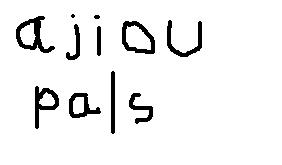 ajiou
pals